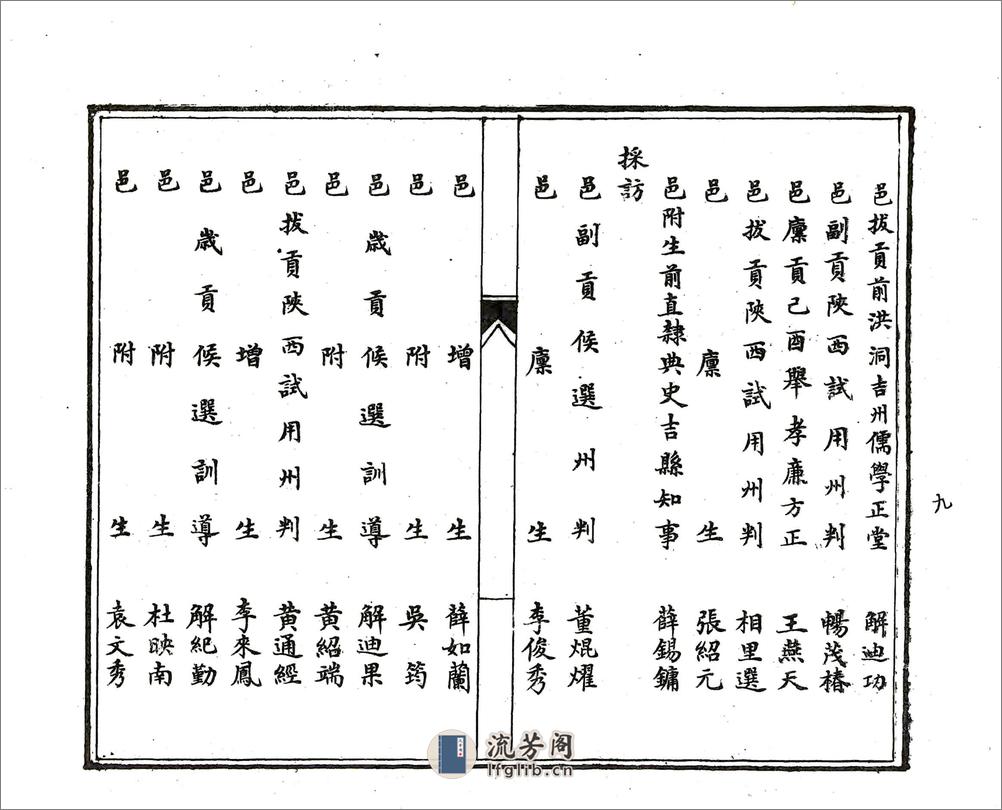 邑拔貢前洪洞吉州儒學正堂 解迪功
邑副貢陝西試用州判 暢茂椿
邑廩貢己酉舉孝廉方正 王燕天
邑拔貢陝西試用州判 相里選
邑廩生 張紹元
邑附生前直隸典史吉縣知事 薛錫鏞
採訪
邑副貢候選州判 董焜燿
邑廩生 李俊秀
邑增生 薛如蘭
邑附生 吳筠
邑歲貢候選訓導 解迪果
邑附生 黃紹端
邑拔貢陝西試用州判 黃通經
邑增生 李來鳳
邑歲貢候選訓導 解紀勤
邑附生 杜映南
邑附生 袁文秀
九
流芳阁
lfglib.cn